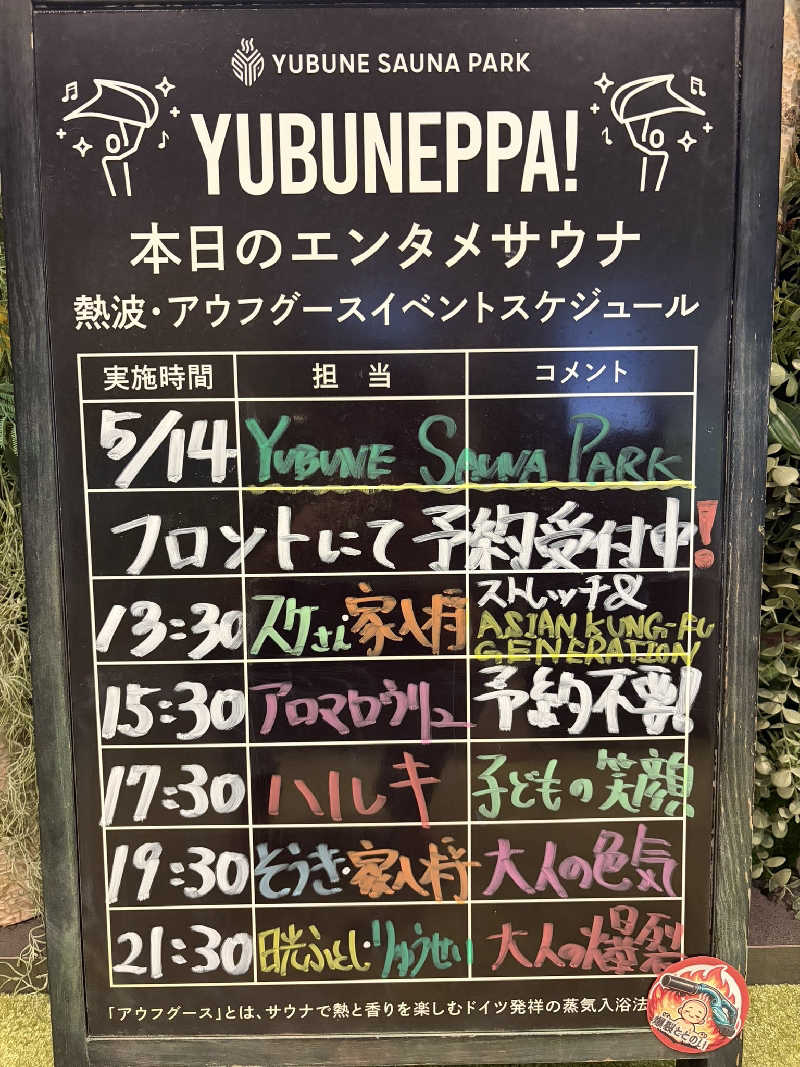 YUBUNE SAUNA PARK
YUBUNEPPA!
本日のエンタメサウナ
熱波・アウフグースイベントスケジュール
実施時間 担当 コメント
5/14 YUBUNE SAUNA PARK
フロントにて予約受付中!
13:30 スケさん・家人将 ストレッチ& ASIAN KUNG-FU GENERATION
15:30 アロマロウリュ 予約不要!
17:30 ハルキ 子どもの笑顔
19:30 そうき・家人将 大人の色気
21:30 日光ふとし・りゅうせい 大人の爆裂
「アウフグース」とは、サウナで熱と香りを楽しむドイツ発祥の蒸気入浴法
爆裂ととのい!